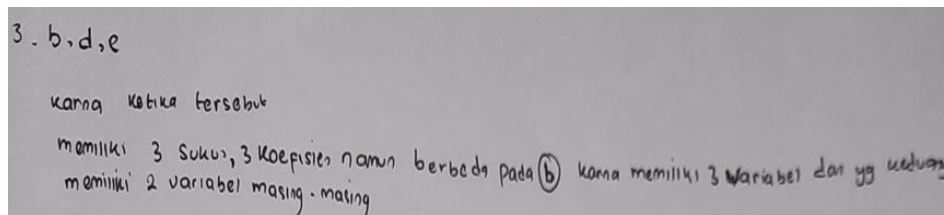 3. b, d, e
karna ketika tersebut
memiliki 3 suku, 3 koefisien namun berbeda pada b karna memiliki 3 variabel dan yg keduanya
memiliki 2 variabel masing-masing